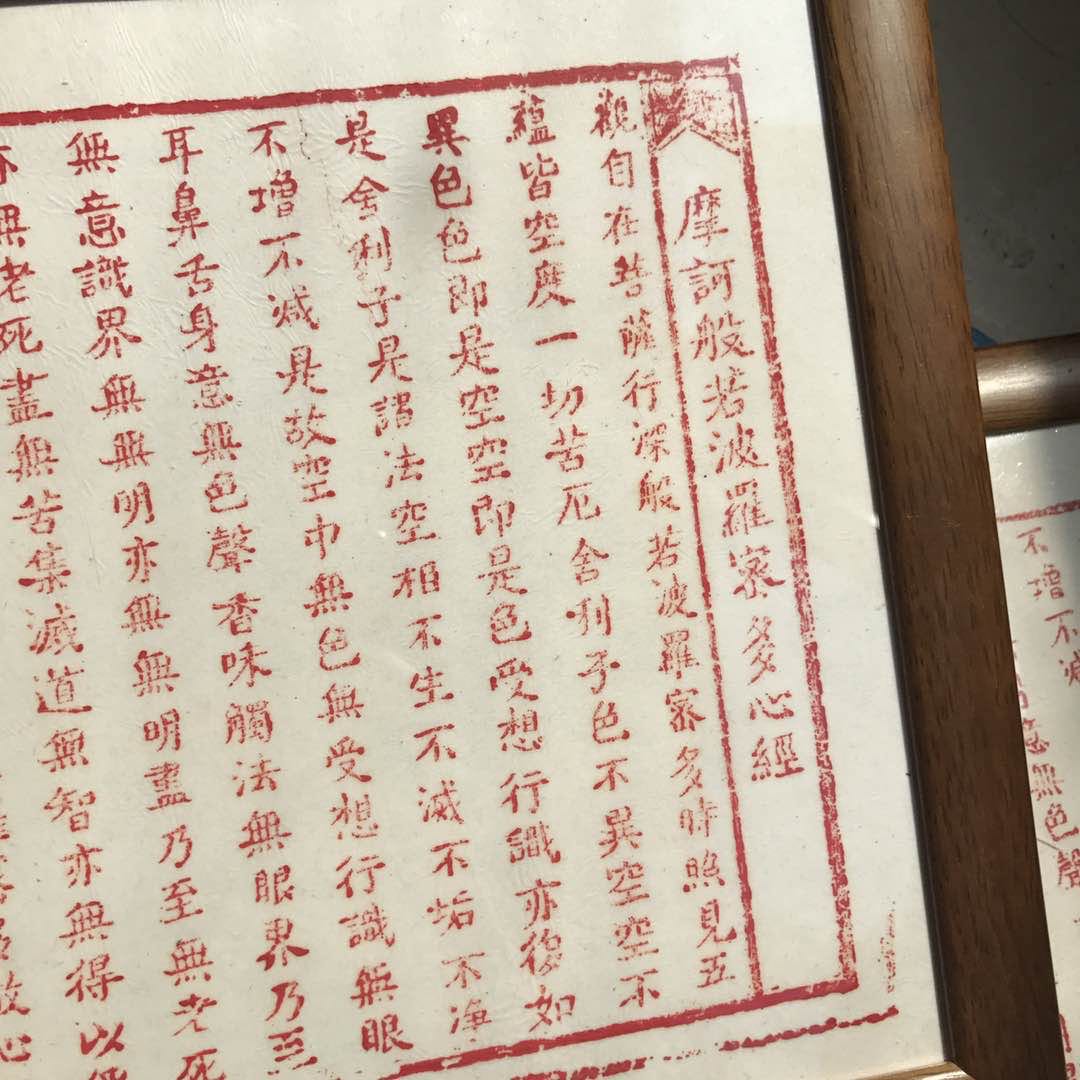 摩訶般若波羅寀多心經
觀自在菩薩行深般若波羅寀多時照見五
蘊皆空度一切苦厄舍利子色不異空空不
異色色即是空空即是色受想行識亦復如
是舍利子是謂法空相不生不滅不垢不净
不增不减是故空中無色無受想行識無眼
耳鼻舌身意無色聲香味觸法無眼界乃至
無意識界無無明亦無無明盡乃至無老死
亦無老死盡無苦集滅道無智亦無得以
故心
不增不減
意無色聲